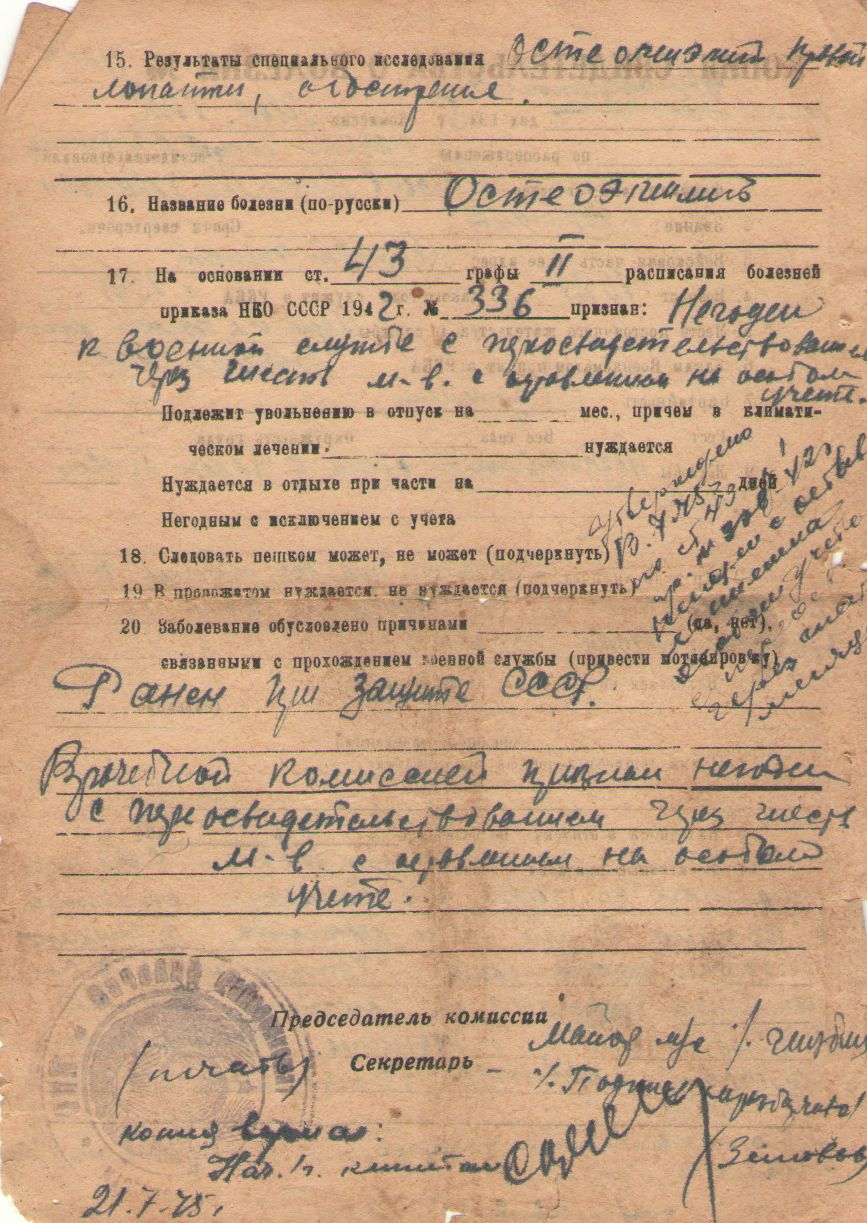 15. Результаты специального исследования Остеомиэлит правой
лопатки, обострение.
16. Название болезни (по-русски) Остеомиэлит
17. На основании ст. 43 графы II расписания болезней
приказа НКО СССР 1942 г. № 336 признан: Негоден
к военной службе с переосвидетельствованием
через шесть м-в. с оставлением на особом
учете.
Подлежит увольнению в отпуск на мес., причем в климати-
ческом лечении. нуждается
Нуждается в отдыхе при части на дней
Негодным с исключением с учета
18. Следовать пешком может, не может (подчеркнуть)
19 В провожатом нуждается, не нуждается (подчеркнуть)
20 Заболевание обусловлено причинами (да, нет).
связанными с прохождением военной службы (привести мотивировку)
Ранен при защите СССР.
Утверждено
по ст. 43
особом учете
через шесть
месяцев
Врачебной комиссией признан негоден
с переосвидетельствованием через шесть
м-в с оставлением на особом
учете.
Председатель комиссии Майор м/с
Секретарь
(печать)
копия верна:
Нач. капитан
21.7.45г.